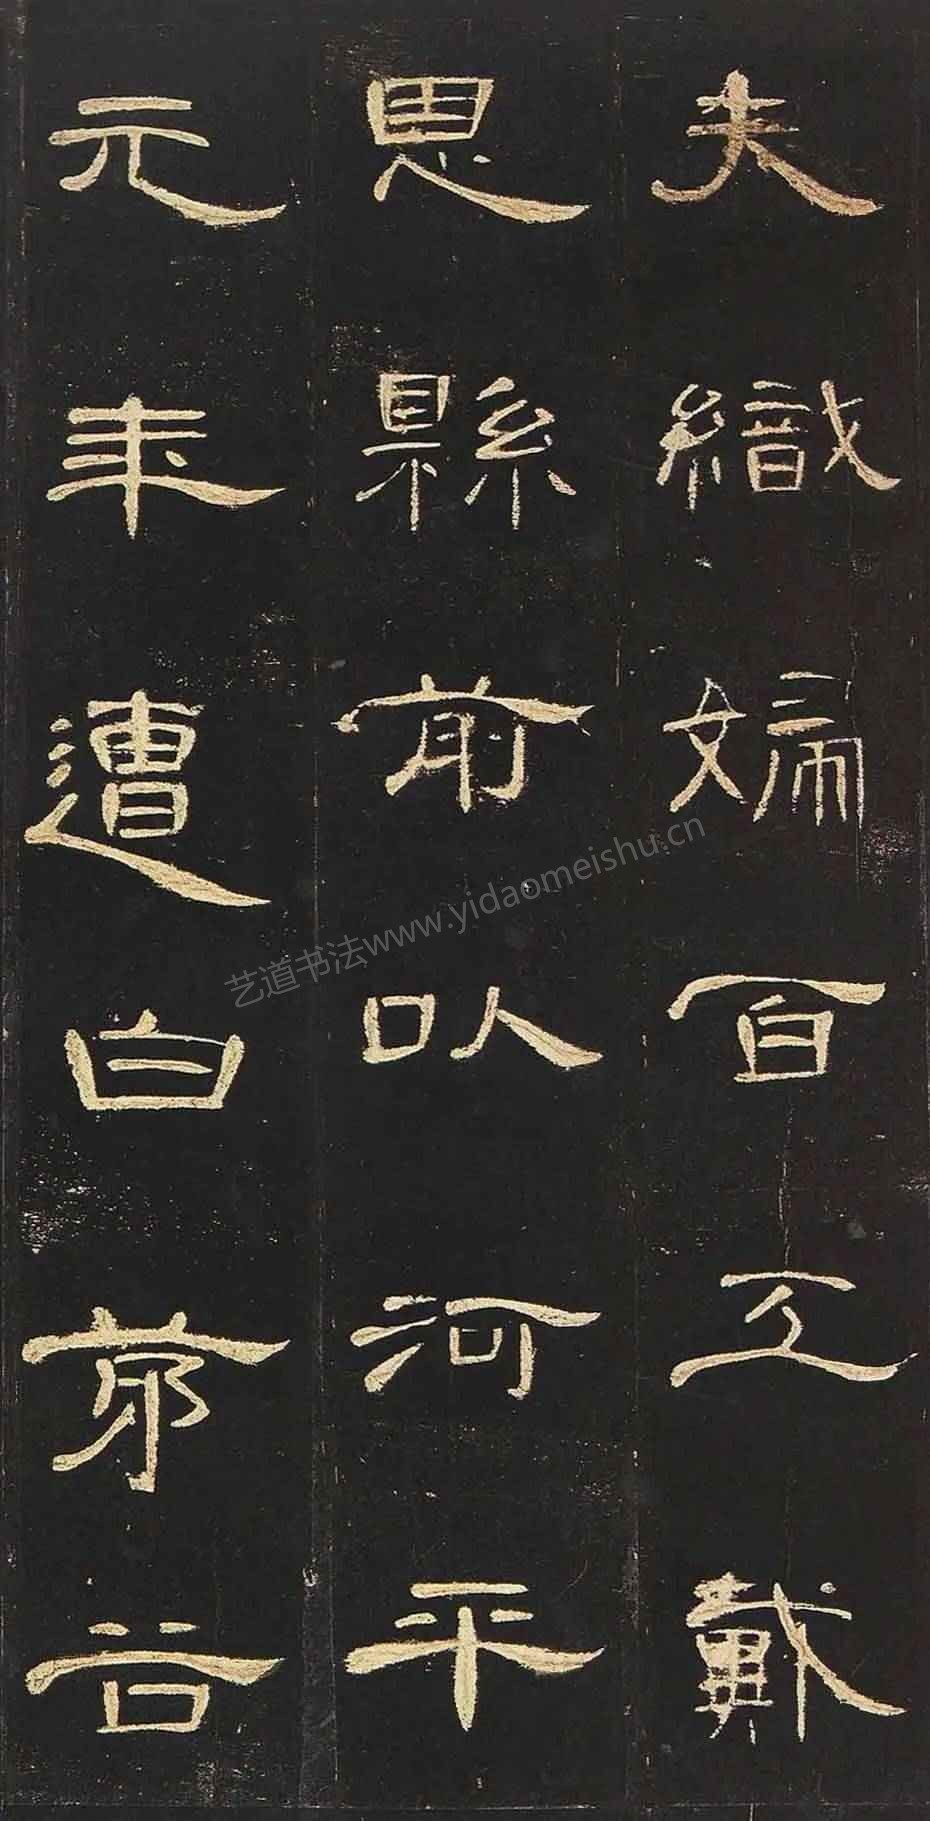 夫織婦百工戴
恩縣前以河平
元年遭白茅谷
艺道书法www.yidaomeishu.cn